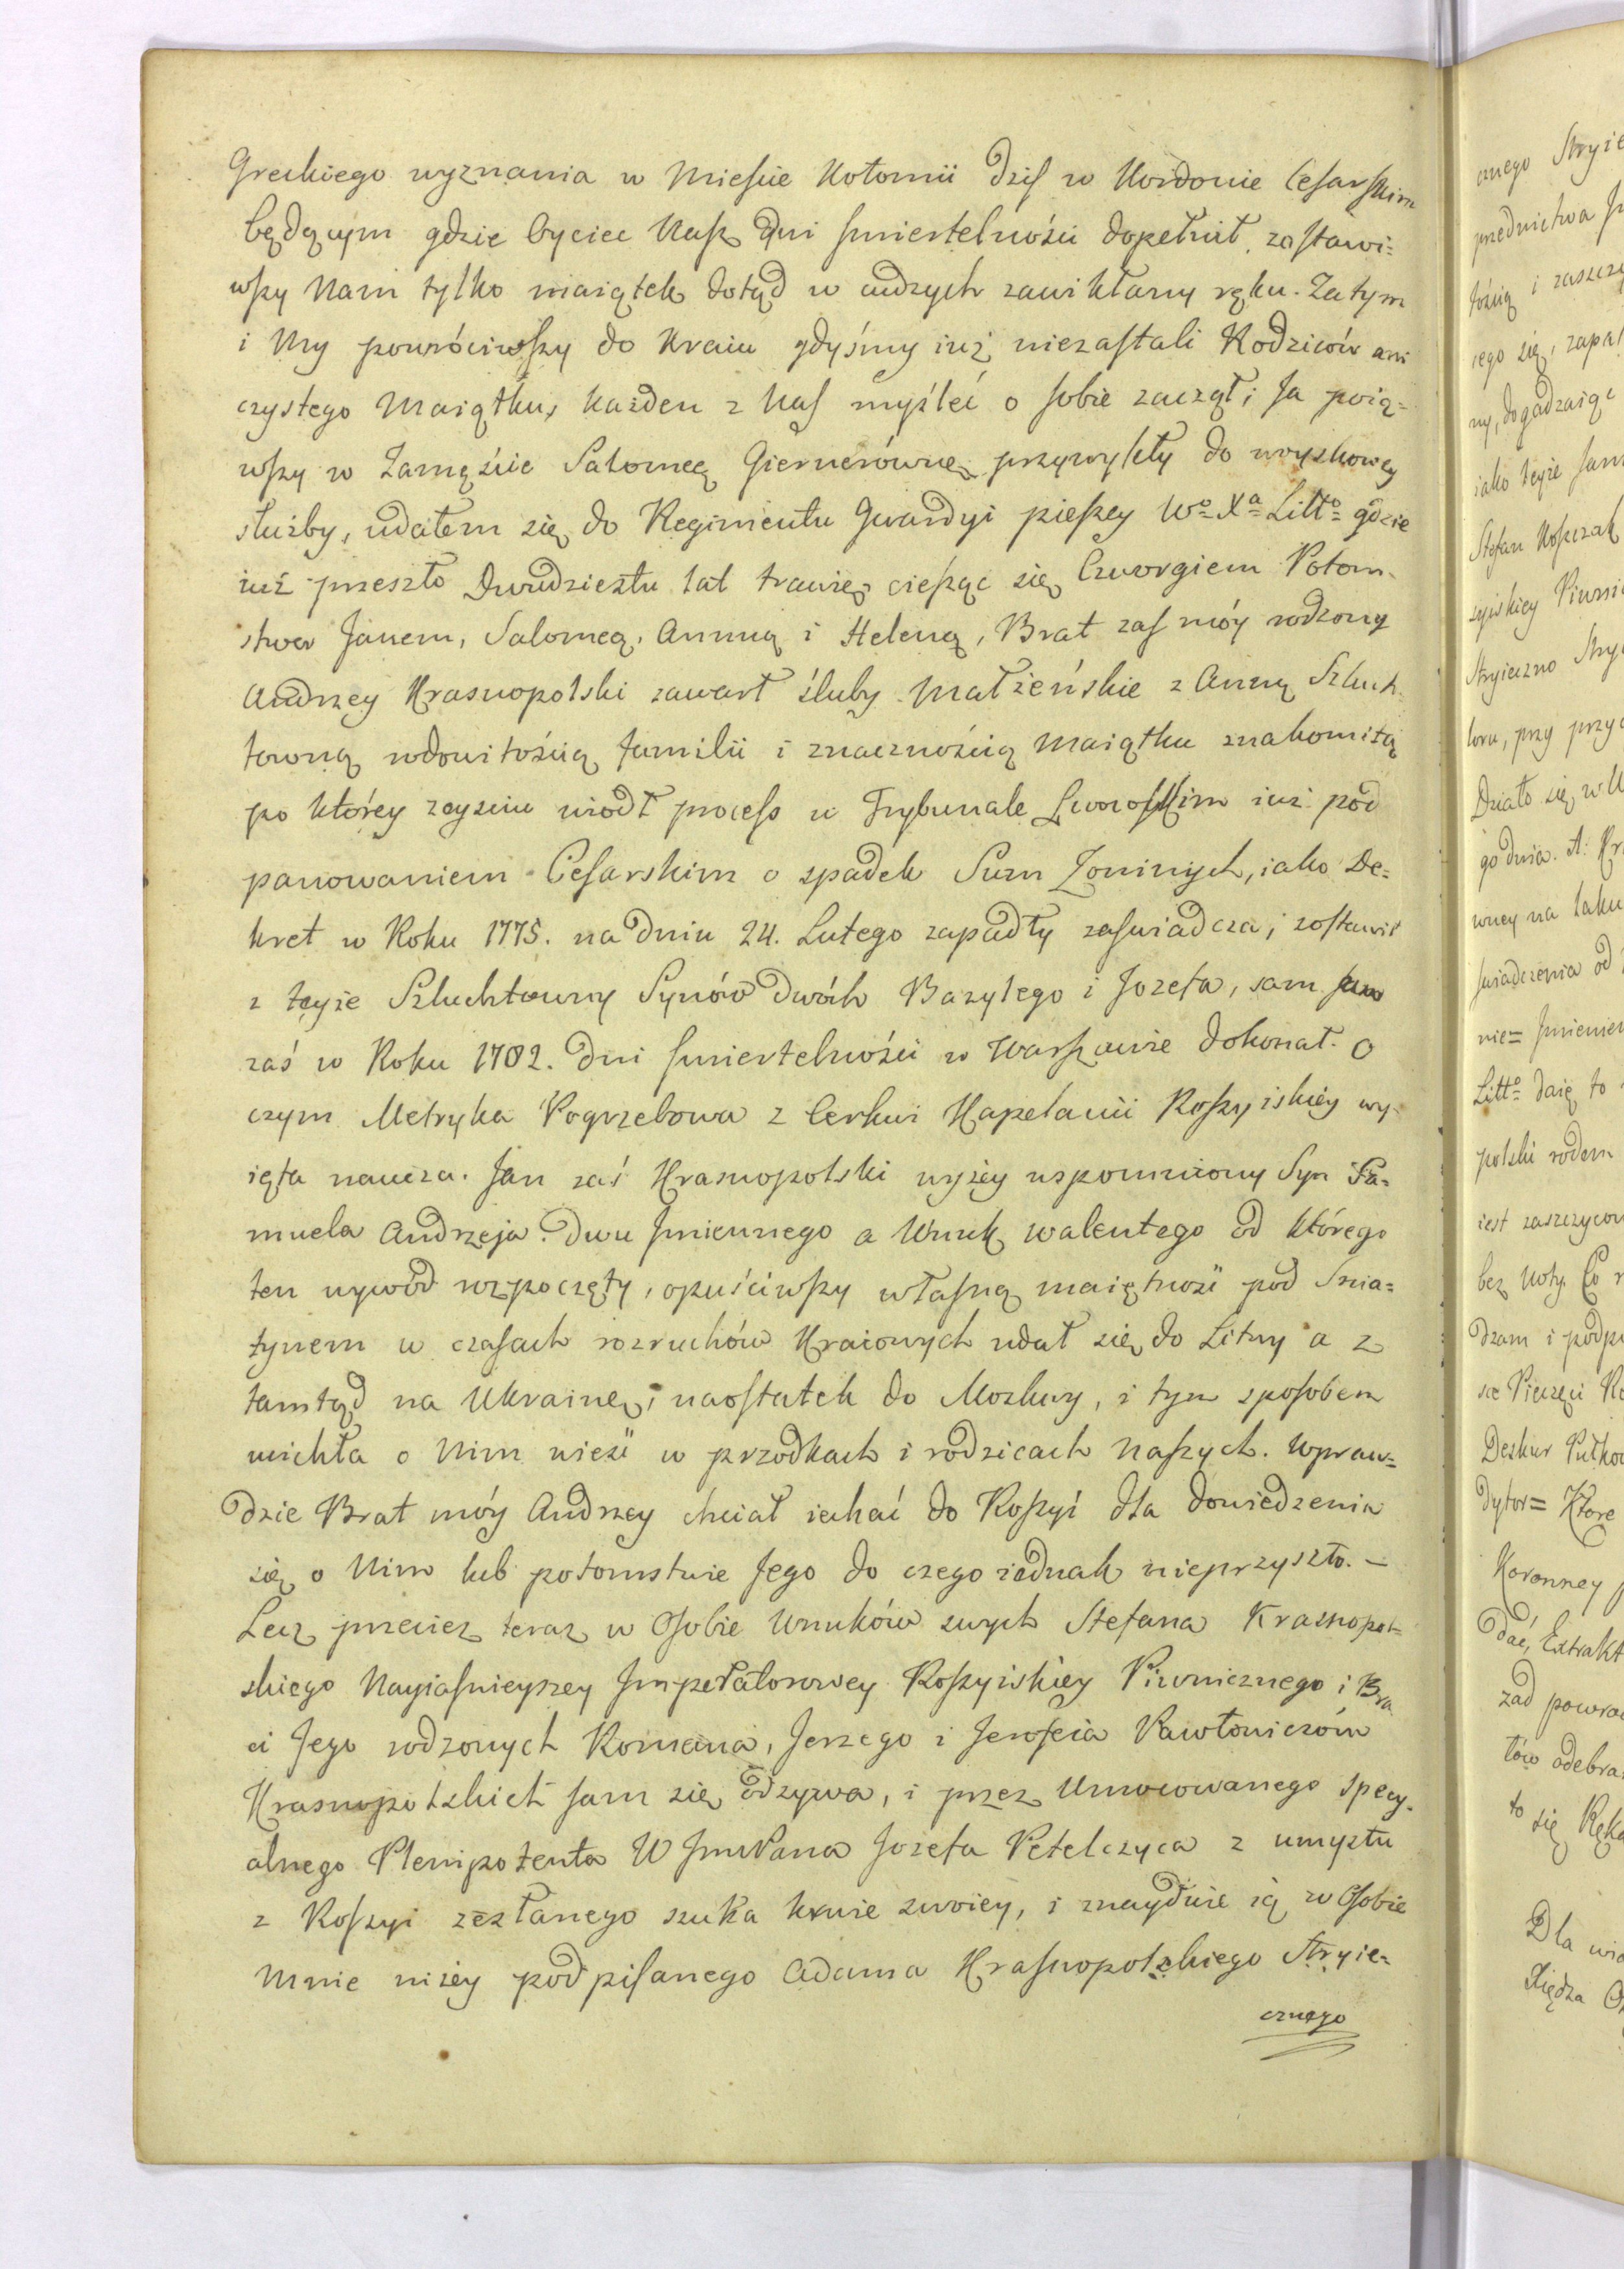 Greckiego wyznania w Mieście Kołomii dziś w Kordonie Cesarskim
będącym gdzie Oyciec Nasz dni śmiertelności dopełnił, zostawi=
wszy Nam tylko maiątek dotąd w cudzych zawikłany ręku. Zatym
i My powróciwszy do Kraiu gdyśmy iuż niezastali Rodziców ani
czystego Maiątku, każden z Nas myśleć o sobie zaczął; Ja poią=
wszy w Zamęście Salomeę Giernerównę przywykły do woyskowey
służby, udałem się do Regimentu Gwardyi pieszey Wo= Xa= Litto= gdzie
iuż przeszło Dwudziestu lat trawię ciesząc się Czworgiem Potom=
stwa Janem, Salomeą, Anną i Heleną, Brat zaś móy rodzony
Andrzey Krasnopolski zawarł śluby Małżeńskie z Anną Szluch=
towną rodowitością familii i znacznością Maiątku znakomitą
po którey zeyściu wiodł process w Trybunale Lwowskim iuż pod
panowaniem Cesarskim o spadek Sum Żoninych, iako De=
kret w Roku 1775. na dniu 24. Lutego zapadły zaświadcza; zostawił
z teyże Szluchtowny Synów dwóch Bazylego i Jozefa, sam
zaś w Roku 1782. dni śmiertelności w Warszawie dokonał. O
czym Metryka Pogrzebowa z Cerkwi Kapelanii Roszyiskiey wy=
ięta naucza. Jan zaś Krasnopolski wyżey wspomniony Syn Sa=
muela Andrzeja dwu Jmiennego a Wnuk Walentego od którego
ten wywód rozpoczęty, opuściwszy własną maiętność pod Śnia=
tynem w czasach rozruchów Kraiowych udał się do Litwy a z
tamtąd na Ukrainę, naostatek do Moskwy, i tym sposobem
ucichła o Nim wieść w przodkach i rodzicach Naszych. Wpraw=
dzie Brat móy Andrzey chciał iechać do Roszyi dla dowiedzenia
się o Nim lub potomstwie Jego do czego iednak nieprzyszło. —
Lecz przecież teraz w Osobie Wnuków swych Stefana Krasnopol=
skiego Nayiaśnieyszey Jmperatorowey Roszyiskiey Piwnicznego i Bra
ci Jego rodzonych Romana, Jerzego i Jerofeia Pawłowiczów
Krasnopolskich sam się odzywa, i przez Umocowanego specy=
alnego Plenipotenta W JmPana Jozefa Petelczyca z umysłu
z Roszyi zesłanego szuka krwie swoiey, i znayduie ią w Osobie
Mnie niżey podpisanego Adama Krasnopolskiego Stryie=
cznego
cznego Stryie
przednictwa
tością i zaszczy
iego się, zapa
ny, dogadzaiąc
iako teyże sam
Stefan Kopczak
szyiskiey Piwni
Stryieczno Stry
toru, przy przy
Działo się w
go dnia. A: Kr
wney na taku
świadczenia od
nie= Jmienien
Litto= daię to
polski rodem
iest zaszczycon
bez Noty. Co
dzam i podpi
sce Pieczęci
Deskur Pułko
dytor= Które
Koronney
dać, Extrakt
zad powra
tów odebra
to się Ręką
Dla
Xiędza